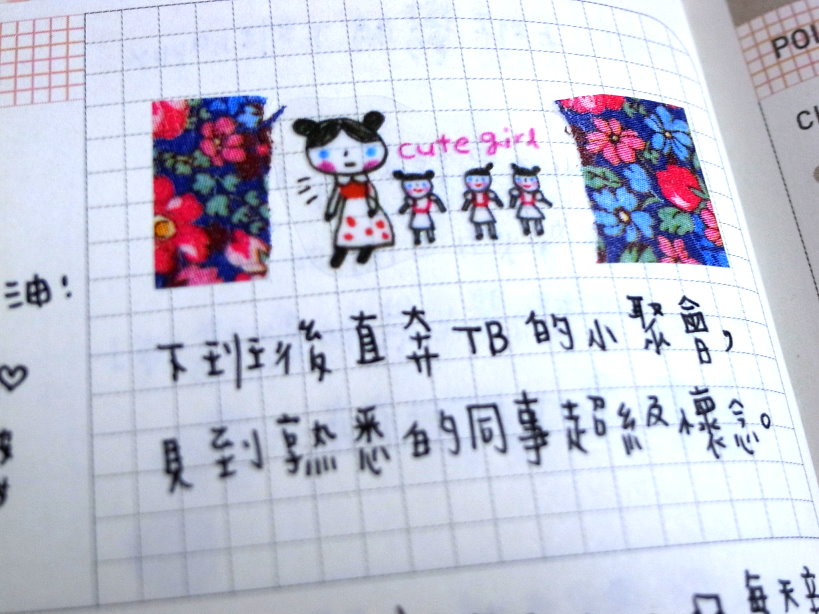 cute girl
下班後直奔TB的小聚會,
見到熟悉的同事超級懷念。
每天